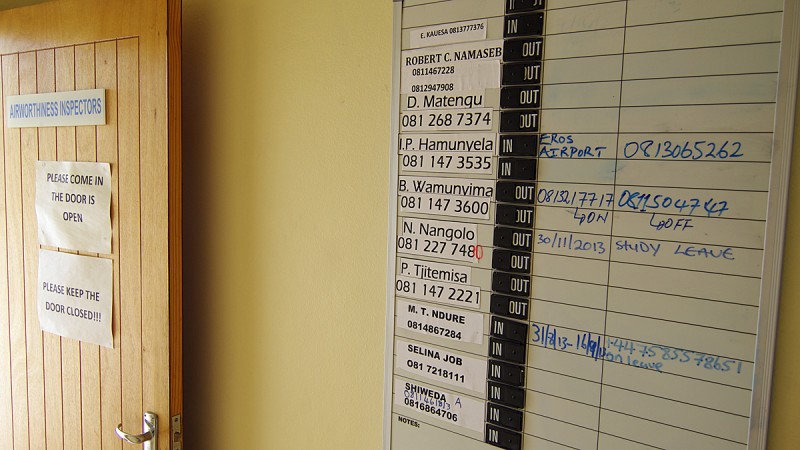 AIRWORTHINESS INSPECTORS
PLEASE COME IN
THE DOOR IS
OPEN
PLEASE KEEP THE
DOOR CLOSED!!!
E. KAUESA 0813777376
IN
ROBERT C. NAMASEB
0811467228
0812947908
OUT
OUT
D. Matengu
081 268 7374
OUT
OUT
I.P. Hamunyela
081 147 3535
IN
IN
EROS
AIRPORT
0813065262
B. Wamunyima
081 147 3600
OUT
OUT
0813217717
↳ON
0811504747
↳OFF
N. Nangolo
081 227 7480
OUT
OUT
30/11/2013 STUDY LEAVE
P. Tjitemisa
081 147 2221
OUT
OUT
M. T. NDURE
0814867284
IN
IN
on leave
SELINA JOB
081 7218111
IN
IN
SHIWEDA A
0816864706
IN
IN
NOTES: